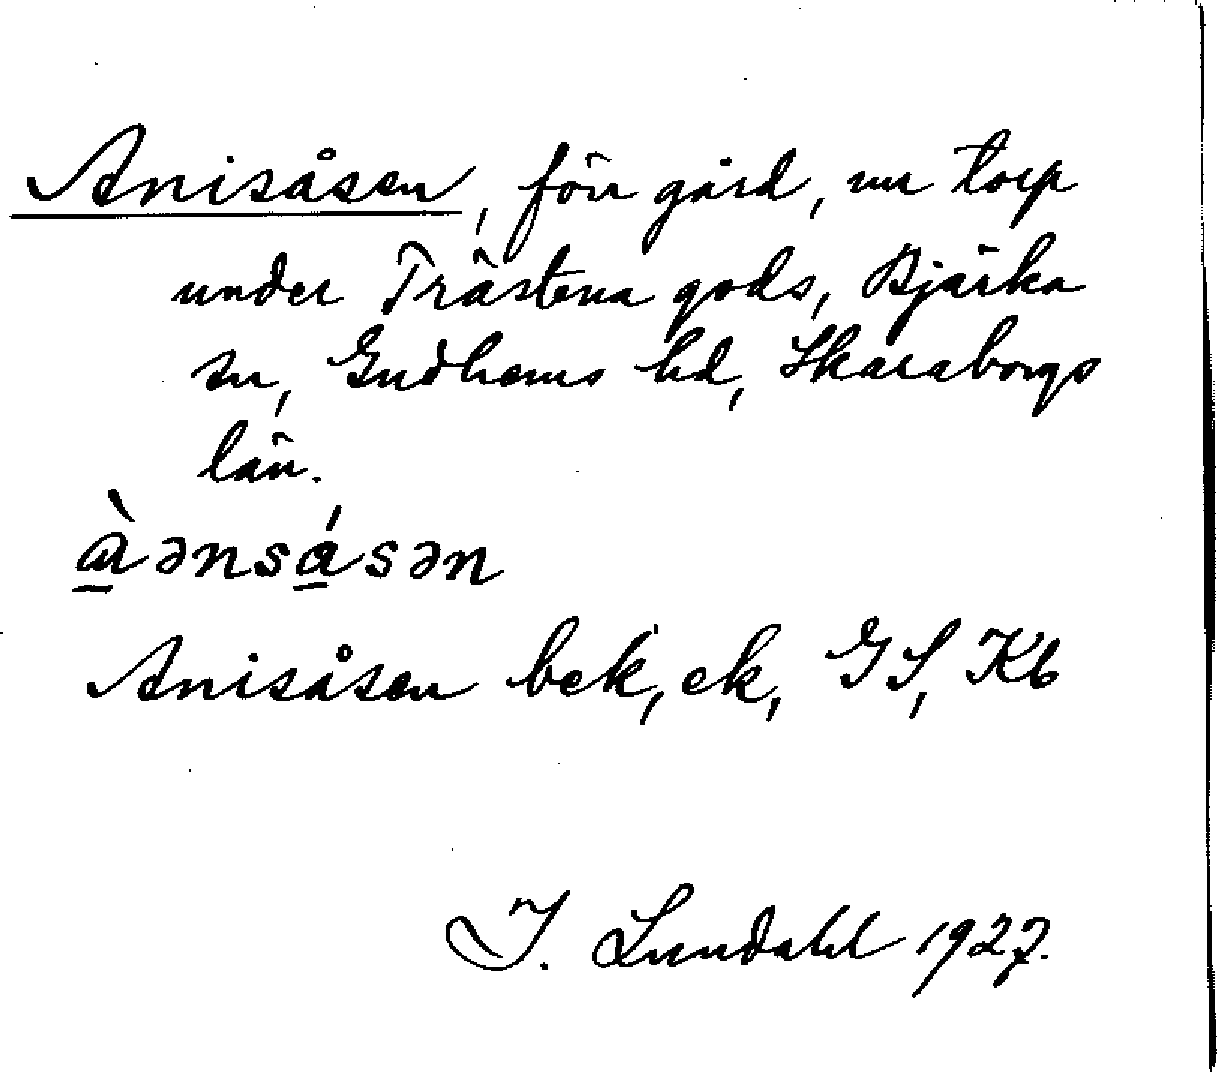 Anisåsen, förr gård, nu torp
under Trästena gods, Bjärka
sn, Gudhems hd, Skaraborgs
län.
ɑ̱̀ənsɑ̱́sən
Anisåsen bek, ek, GS, Kb
I. Lundahl 1927.